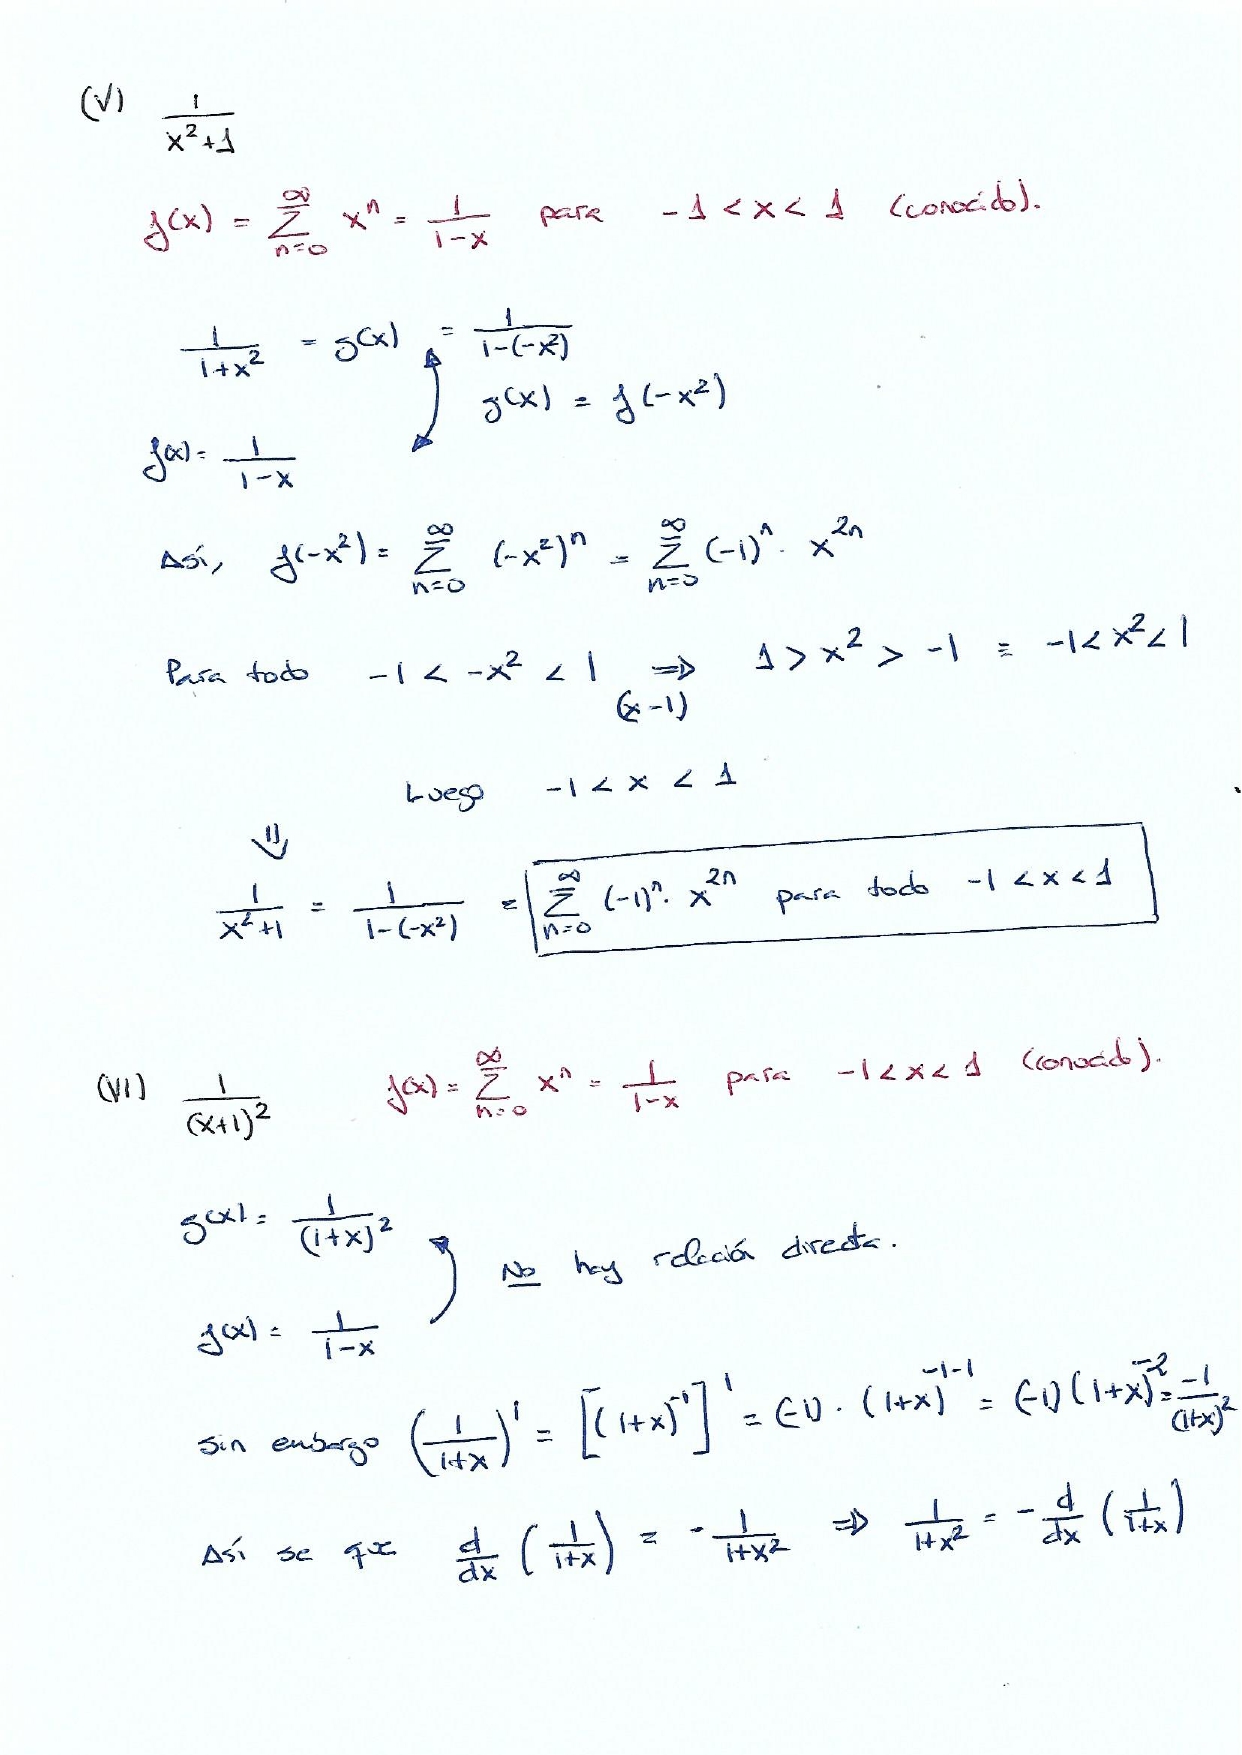 (V) 1/(x²+1)
f(x) = ∑_{n=0}^{∞} xⁿ = 1/(1-x) para -1 < x < 1 (conocido).
1/(1+x²) = g(x) = 1/(1-(-x²))
g(x) = f(-x²)
f(x) = 1/(1-x)
Así, f(-x²) = ∑_{n=0}^{∞} (-x²)ⁿ = ∑_{n=0}^{∞} (-1)ⁿ · x²ⁿ
Para todo -1 < -x² < 1 ⇒ 1 > x² > -1 ≡ -1 < x² < 1
(x -1)
Luego -1 < x < 1
⇓
1/(x²+1) = 1/(1-(-x²)) = ∑_{n=0}^{∞} (-1)ⁿ · x²ⁿ para todo -1 < x < 1
(VI) 1/(x+1)² f(x) = ∑_{n=0}^{∞} xⁿ = 1/(1-x) para -1 < x < 1 (conocido).
g(x) = 1/(1+x)²
No hay relación directa.
f(x) = 1/(1-x)
Sin embargo (1/(1+x))' = [(1+x)⁻¹]' = (-1) · (1+x)⁻¹⁻¹ = (-1)(1+x)⁻² = -1/(1+x)²
Así se que d/dx (1/(1+x)) = - 1/(1+x²) ⇒ 1/(1+x²) = - d/dx (1/(1+x))